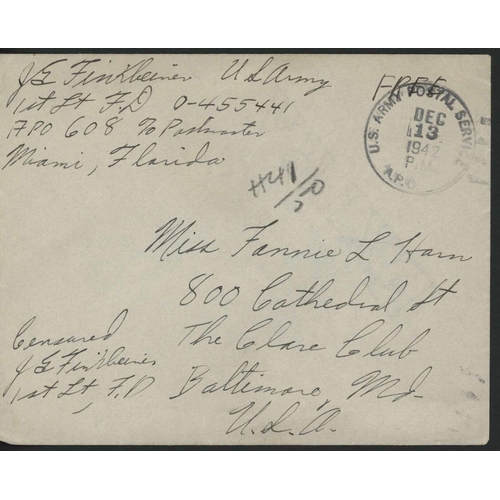 J E Finkbeiner U S Army
1st Lt F.D 0-455441
APO 608 % Postmaster
Miami, Florida
FREE
U.S. ARMY POSTAL SERVICE
DEC
13
1942
P.M.
A.P.O.
Miss Fannie L Ham
800 Cathedral St
The Clare Club
Baltimore, Md.
U.S.A.
Censured
J E Finkbeiner
1st Lt, F.D